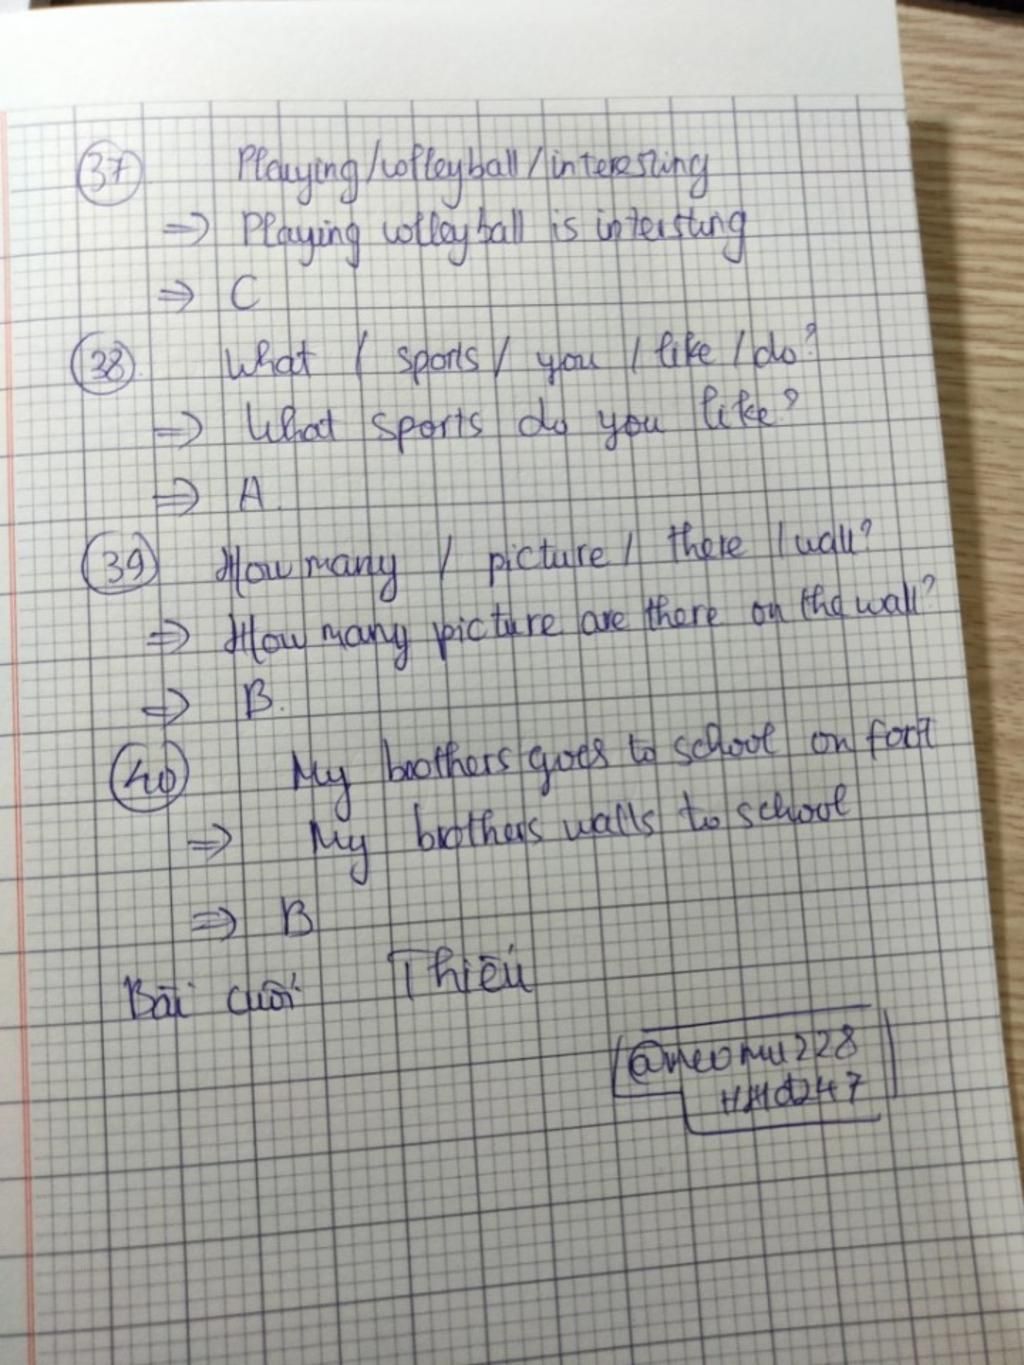 37 Playing/volleyball/interesting
=> Playing volleyball is intersting
=> C
38 What / sports / you / like / do?
=> What sports do you like?
=> A.
39 How many / picture / there / wall?
=> How many picture are there on the wall?
=> B.
40 My brothers goes to school on foot
=> My brothers walls to school
=> B
Bài cuối Thiếu
@meomu228